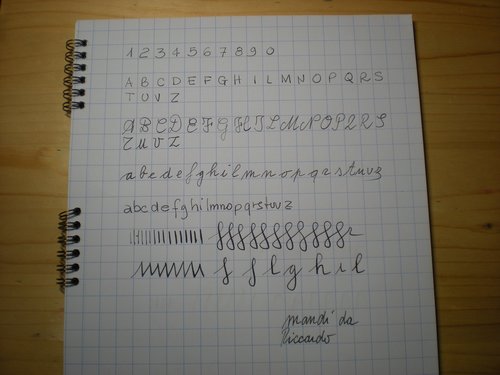 1 2 3 4 5 6 7 8 9 0
A B C D E F G H I L M N O P Q R S
T U V Z
A B C D E F G H I L M N O P Q R S
T U V Z
a b c d e f g h i l m n o p q r s t u v z
a b c d e f g h i l m n o p q r s t u v z
f f l g h i l
mandi da
Riccardo